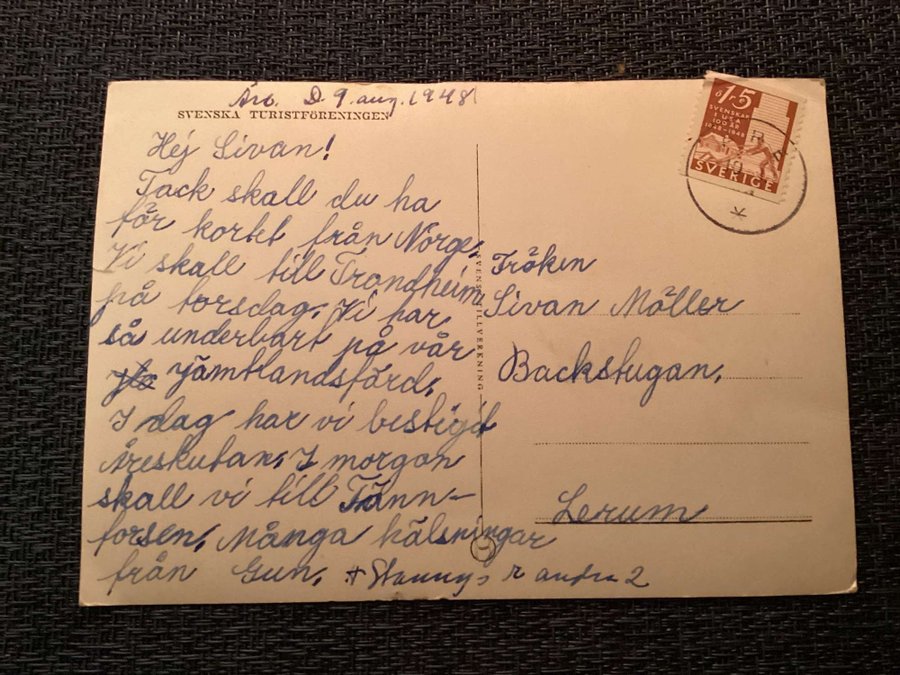 Åre. D. 9. aug. 1948
SVENSKA TURISTFÖRENINGEN
Hej Sivan!
Tack skall du ha
för kortet från Norge.
Vi skall till Trondheim
på torsdag. Vi har
så underbart på vår
Jämtlandsfärd.
I dag har vi bestigit
Åreskutan. I morgon
skall vi till Tänn-
forsen. Många hälsningar
från Gun. + andra 2
SVENSK TILLVERKNING
Fröken
Sivan Möller
Backstugan.
Lerum
ö 15
SVENSKAR
I USA
100 ÅR
1848-1948
SVERIGE